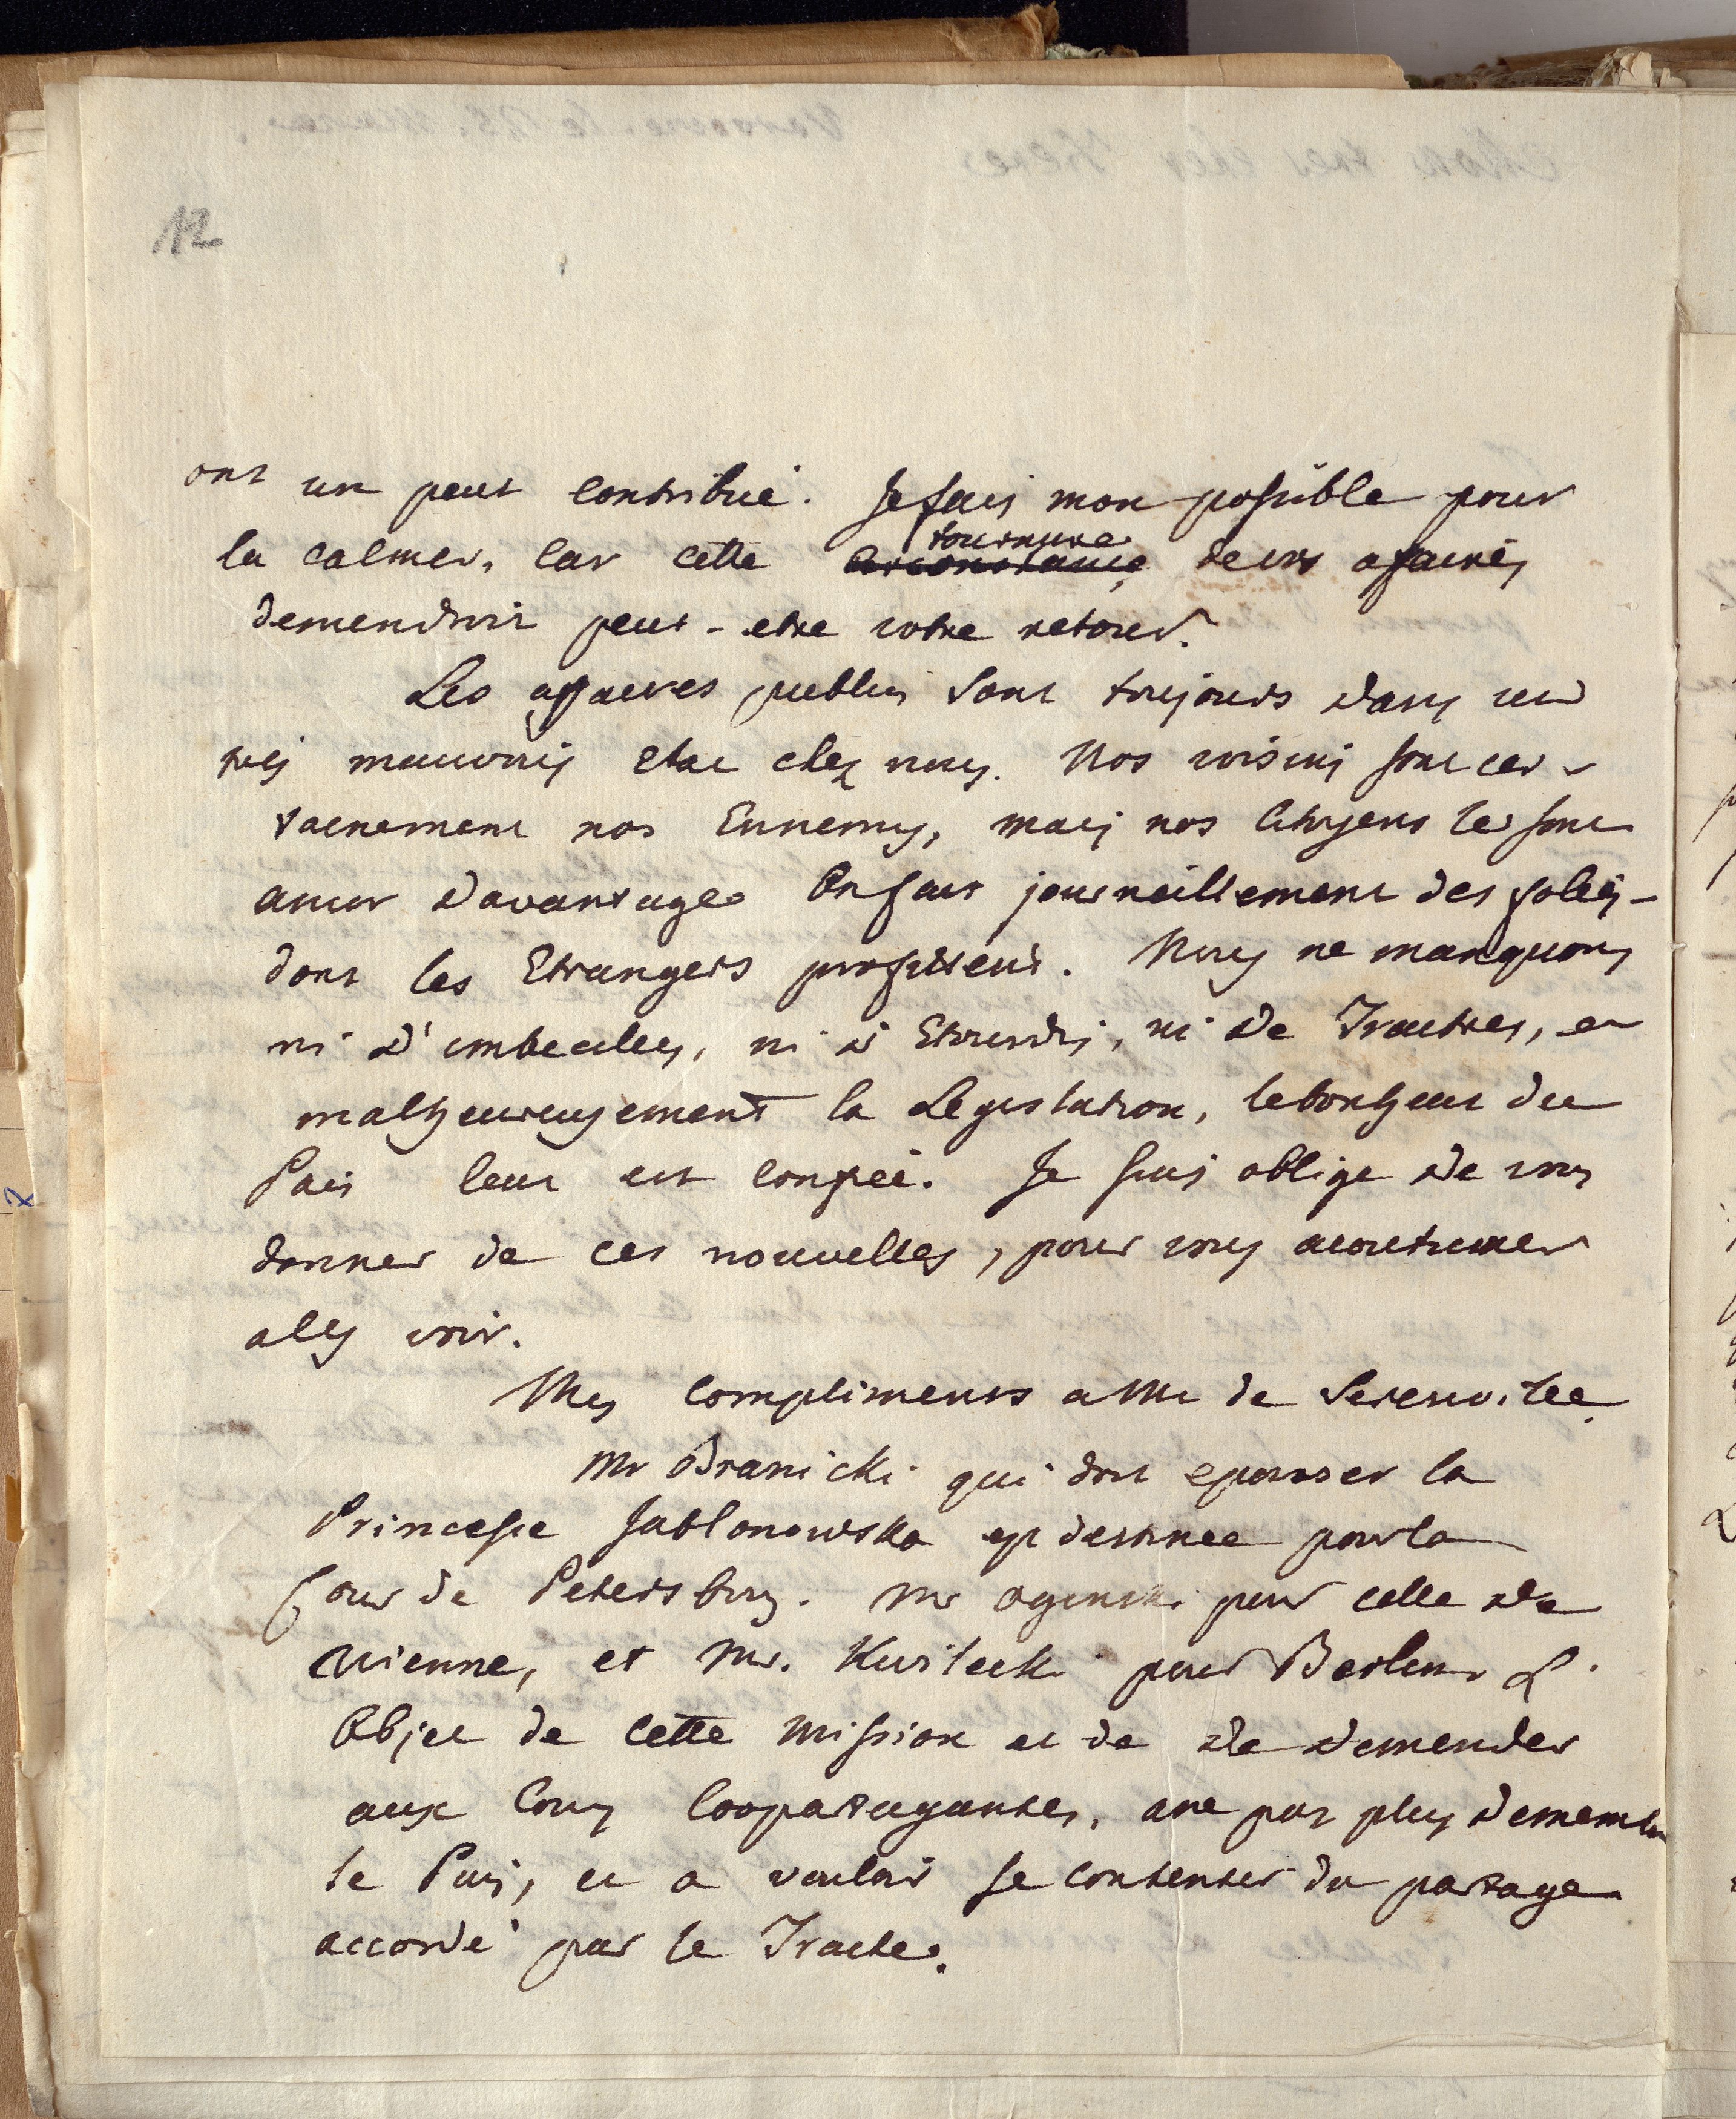 12
ont un peut contribué. Je fais mon possible pour
la calmer, car cette circonstance tournure de vos afaires
demendroit peut-etre votre retour.
Les affaires publics sont toujours dans un
tres mauvais etat chez nous. Nos voisins sont cer-
tainement nos Ennemys, mais nos Citoyens les sont
davantage On fait journeillement des folies -
dont les Etrangers profitent. Nous ne manquons
ni d'imbecilles, ni d'Etourdis, ni de Traitres, et
malheureusement la Legislation, le bonheur du
Pais leur est confiée. Je suis obligé de vous
donner de ces nouvelles, pour vous acoutumer
a les voir.
Mes compliments a Mr de
Mr Branicki qui doit epouser la
Princesse Jablonowska est destinee pour la
Cour de Petersburg. Mr Oginski pour celle de
Vienne, et Mr. Kwilecki pour Berlin L'
Objet de cette Mission et de de demender
aux Cours Copartagantes, a ne pas plus demembr
le Pais, et a vouloir se contenter du partage
accordé par le Traité.